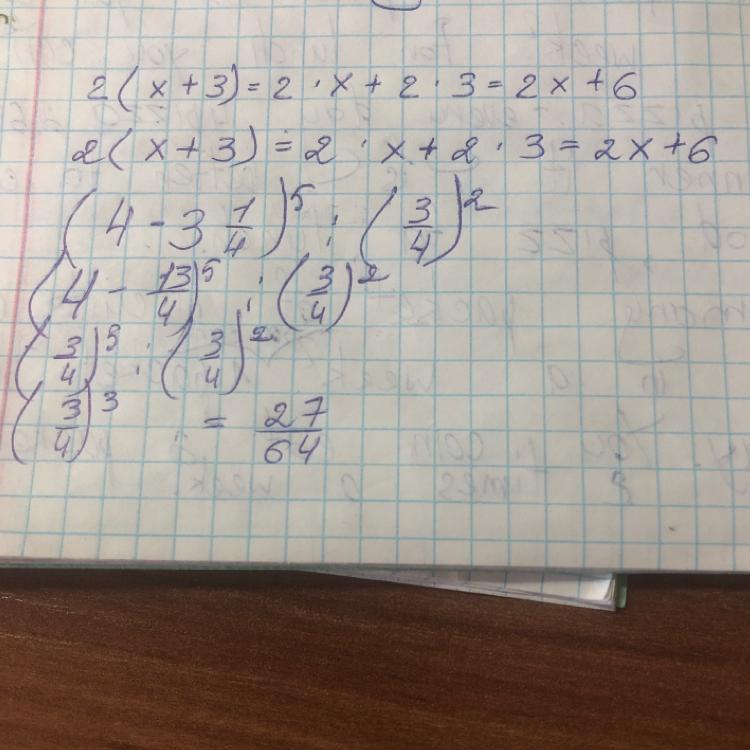 2(x+3)=2·x+2·3=2x+6
2(x+3)=2·x+2·3=2x+6
(4-3 1/4)^5 : (3/4)^2
(4-13/4)^5 : (3/4)^2
(3/4)^5 : (3/4)^2
(3/4)^3 = 27/64